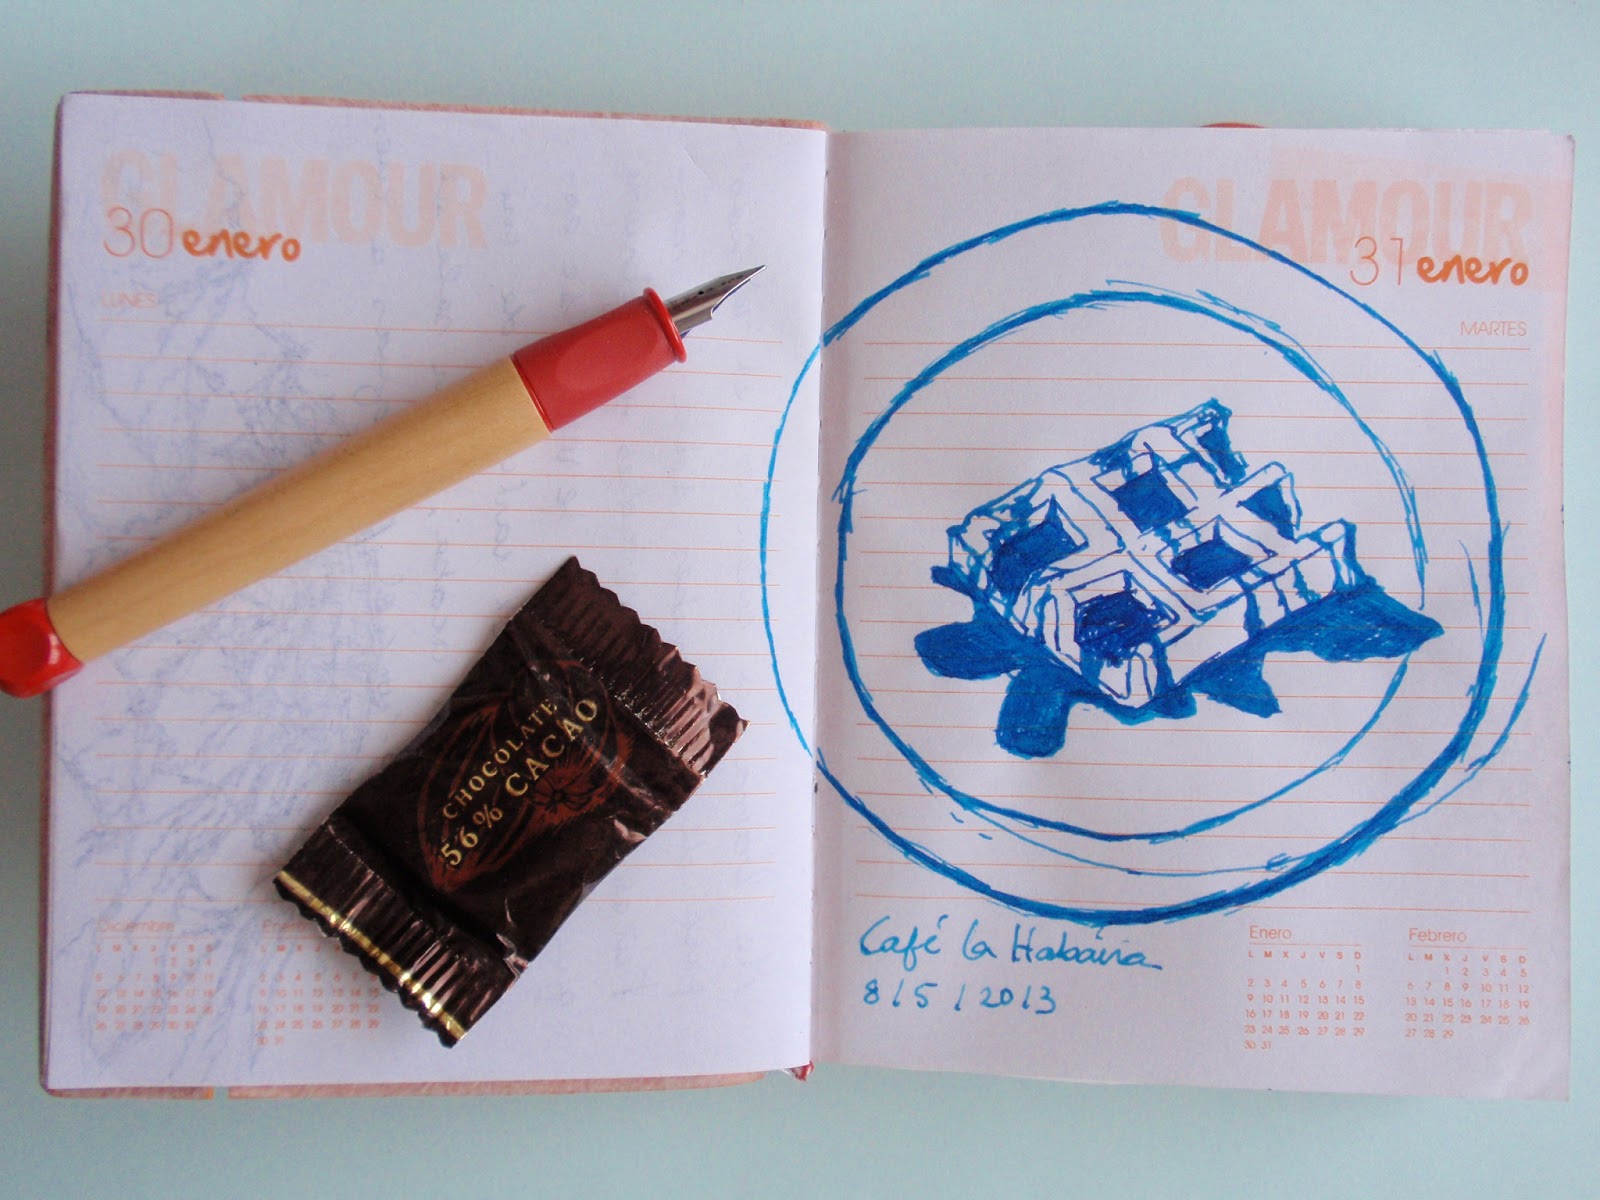 GLAMOUR
30 enero
LUNES
CHOCOLATE
56% CACAO
Diciembre
GLAMOUR
31 enero
MARTES
Café la Habana
8/5/2013
Enero
L M X J V S D
1
2 3 4 5 6 7 8
9 10 11 12 13 14 15
16 17 18 19 20 21 22
23 24 25 26 27 28 29
30 31
Febrero
L M X J V S D
1 2 3 4 5
6 7 8 9 10 11 12
13 14 15 16 17 18 19
20 21 22 23 24 25 26
27 28 29